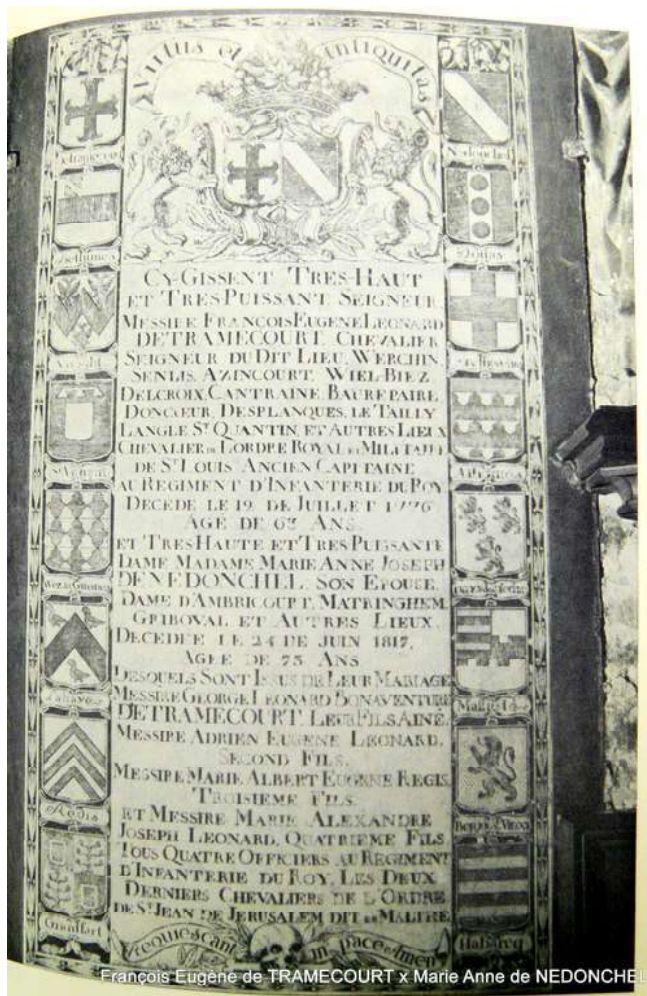 Virtus et antiquitas
Nedonchel
Bethunes
Douay
CY-GISSENT TRES-HAUT
ET TRES PUISSANT SEIGNEUR
MESSIRE FRANCOIS EUGENE LEONARD
DE TRAMECOURT CHEVALIER
SEIGNEUR DU DIT LIEU, WERCHIN
SENLIS, AZINCOURT, WIEL-BIEZ
DELCROIX, CANTRAINE, BAUREPAIRE
DONCŒUR, DESPLANQUES, LE TAILLY
LANGLE ST QUANTIN, ET AUTRES LIEUX
CHEVALIER DE LORDRE ROYAL ET MILITAIRE
DE ST LOUIS ANCIEN CAPITAINE
AU REGIMENT D'INFANTERIE DU ROY
DECEDE LE 19 DE JUILLET
AGE DE ANS
ET TRES HAUTE ET TRES PUISSANTE
DAME MADAME MARIE ANNE JOSEPH
DE NEDONCHEL, SON EPOUSE,
DAME D'AMBRICOURT, MATRINGHEM,
GRIBOVAL ET AUTRES LIEUX,
DECEDEE LE 24 DE JUIN 1817,
AGEE DE 75 ANS
DESQUELS SONT ISSUS DE LEUR MARIAGE
MESSIRE GEORGE LEONARD BONAVENTURE
DE TRAMECOURT, LEUR FILS AINE,
MESSIRE ADRIEN EUGENE LEONARD,
SECOND FILS,
MESSIRE MARIE ALBERT EUGENE REGIS,
TROISIEME FILS
ET MESSIRE MARIE ALEXANDRE
JOSEPH LEONARD, QUATRIEME FILS,
TOUS QUATRE OFFICIERS AU REGIMENT
D'INFANTERIE DU ROY, LES DEUX
DERNIERS CHEVALIERS DE L'ORDRE
DE ST JEAN DE JERUSALEM DIT DE MALTHE
requiescant in pace Amen
François Eugène de TRAMECOURT x Marie Anne de NEDONCHEL